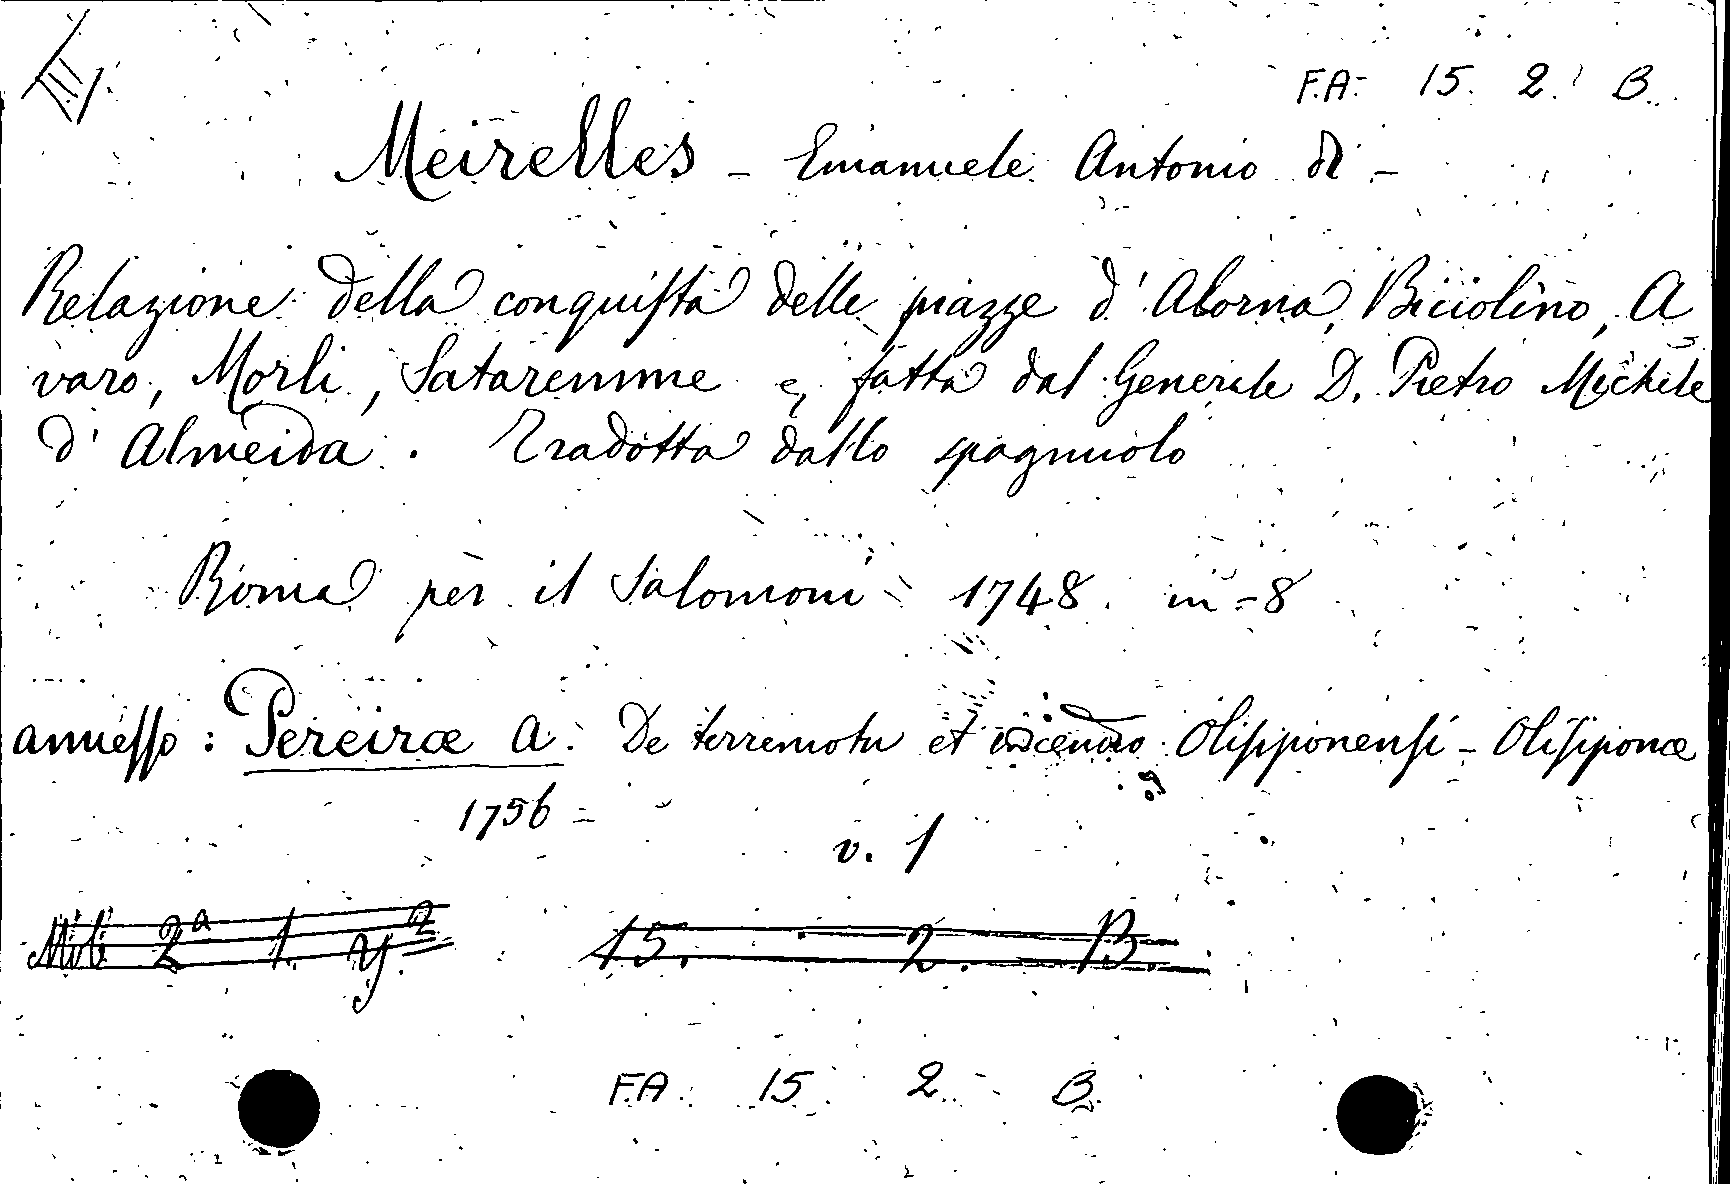 III
F.A. 15. 2. B.
Meirelles - Emanuele Antonio di -
Relazione della conquista delle piazze d'Alorna, Biciolino, A
varo, Morli, Sataremme e, fatta dal Generale D. Pietro Michele
d'Almeida. Tradotta dallo spagnuolo
Roma per il Salomoni 1748. in-8
annesso: Pereiræ A. De terremotu et incendio Olisipponensi - Olisiponæ
1756 -
v. 1
2ª 1. y² 15. 2. B.
F.A. 15 2 B.